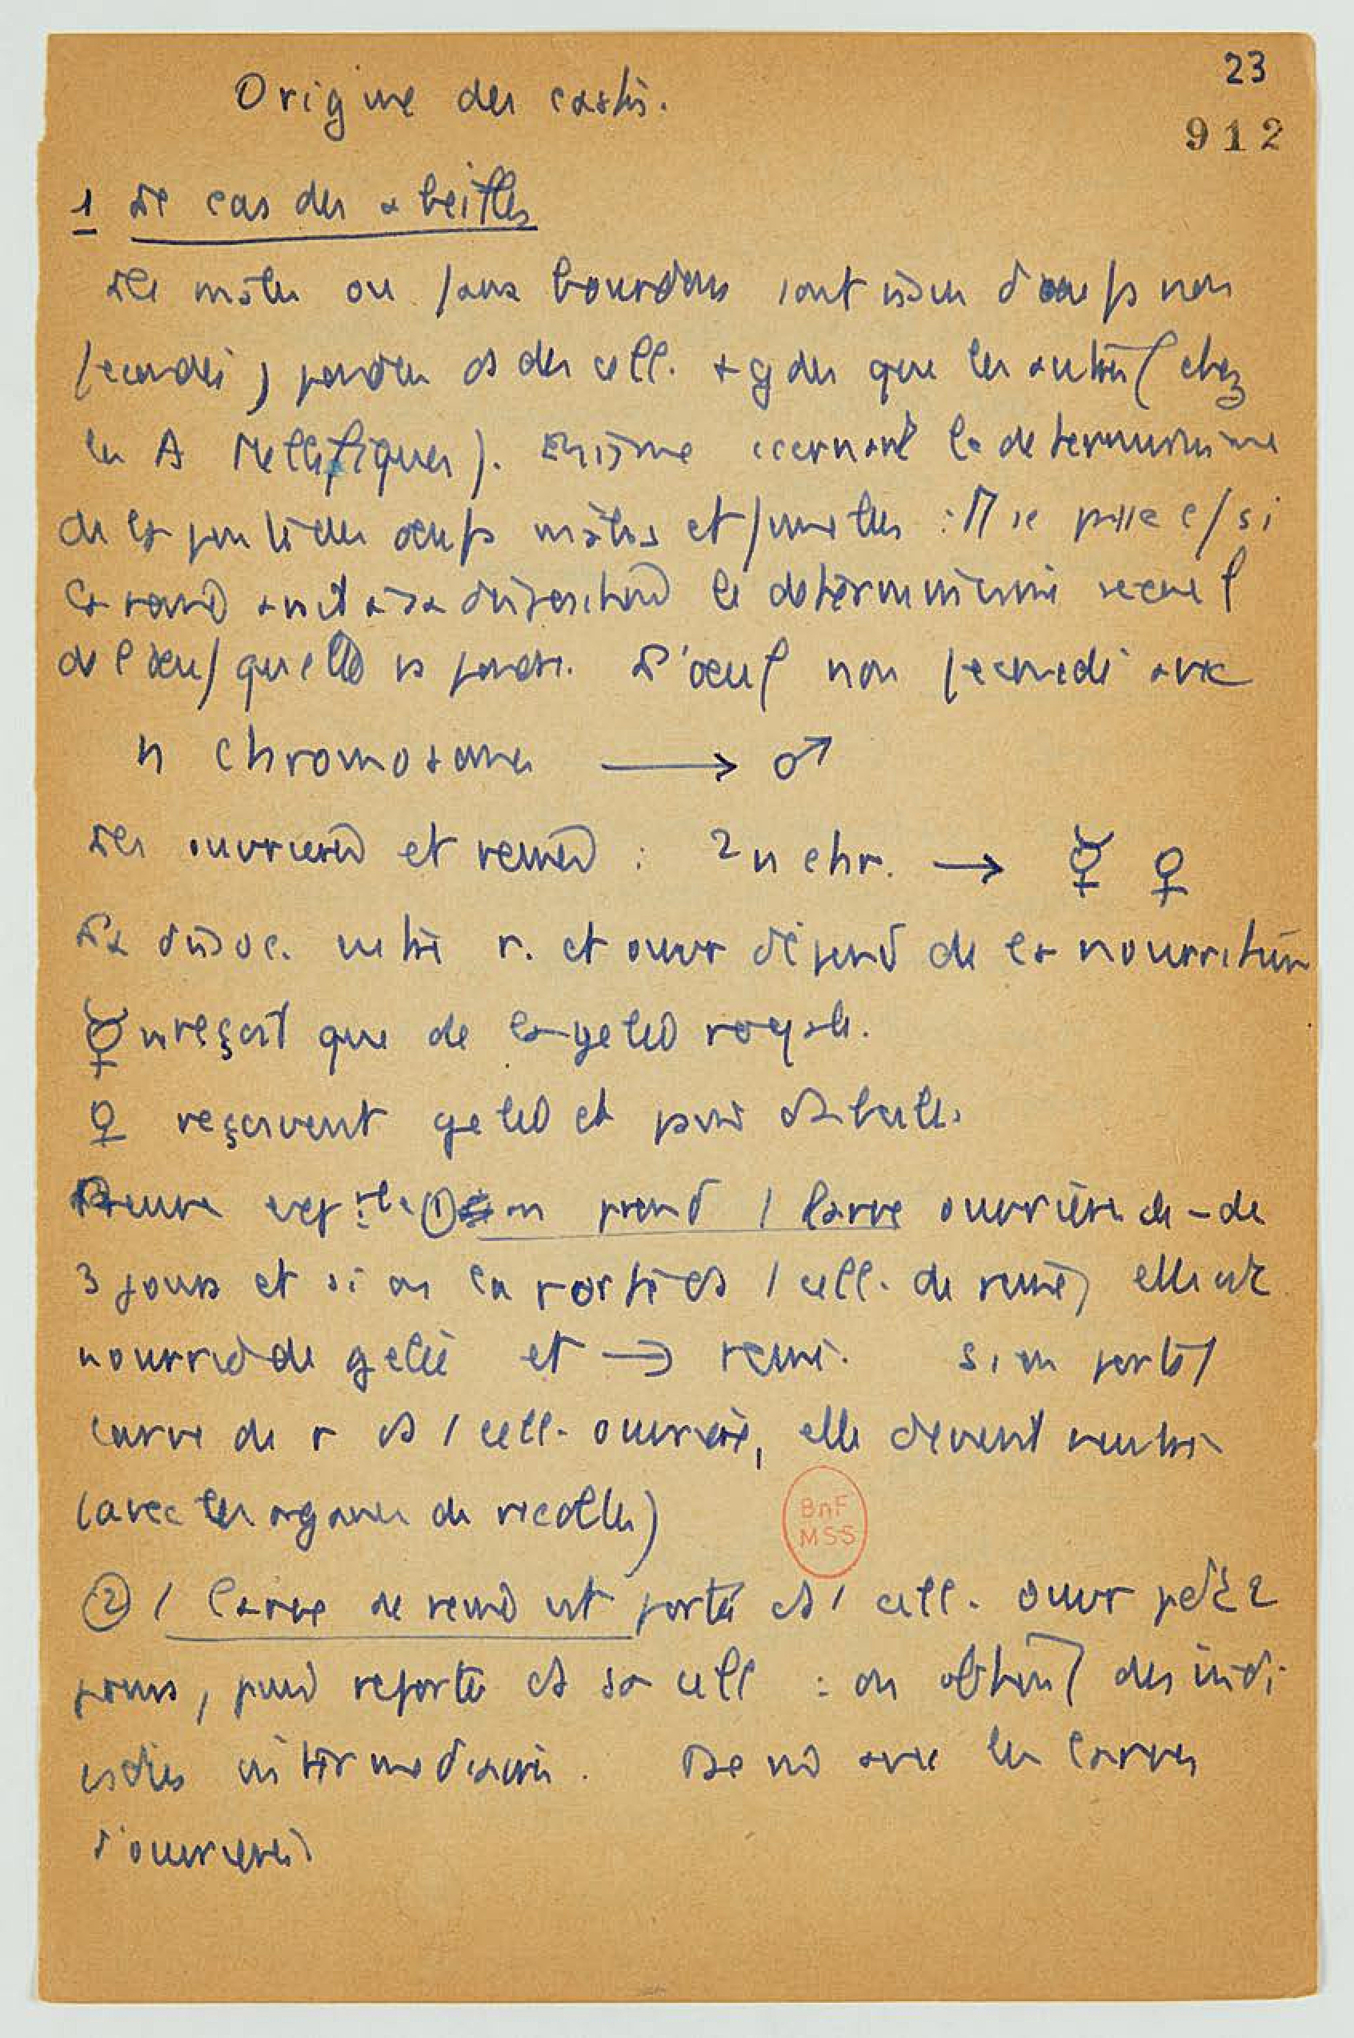 23
912
Origine des castes.
1 Le cas des abeilles
Les mâles ou faux bourdons sont issus d'oeufs non
fécondés, pondus ds des cell. + gdes que les autres (chez
les A Mellifiques). Enigme concernant le determinisme
de la ponte des oeufs mâles et femelles : Il se passe c/ si
la reine avait à sa disposition le déterminisme sexuel
de l'oeuf qu'elle va pondre. L'oeuf non fécondé avec
n chromosomes ⟶ ♂
Les ouvrières et reines : 2n chr. → ☿ ♀
La dissoc. entre r. et ouvr dépend de la nourriture
☿ ne reçoit que de la gelée royale.
♀ reçoivent gelée et puis
Preuve ① on prend 1 larve ouvrière de - de
3 jours et si on la porte ds 1 cell. de reine, elle est
nourrie de gelée et → reine. Si on porte 1
larve de r ds 1 cell. ouvrière, elle devient neutre
(avec les organes de récolte)
BnF
MSS
② 1 larve de reine est portée ds 1 cell. ouvr pdt 2
jours, puis reportée ds sa cell : on obtient des indi
vidus intermédiaires. De m̂ avec les larves
d'ouvrières